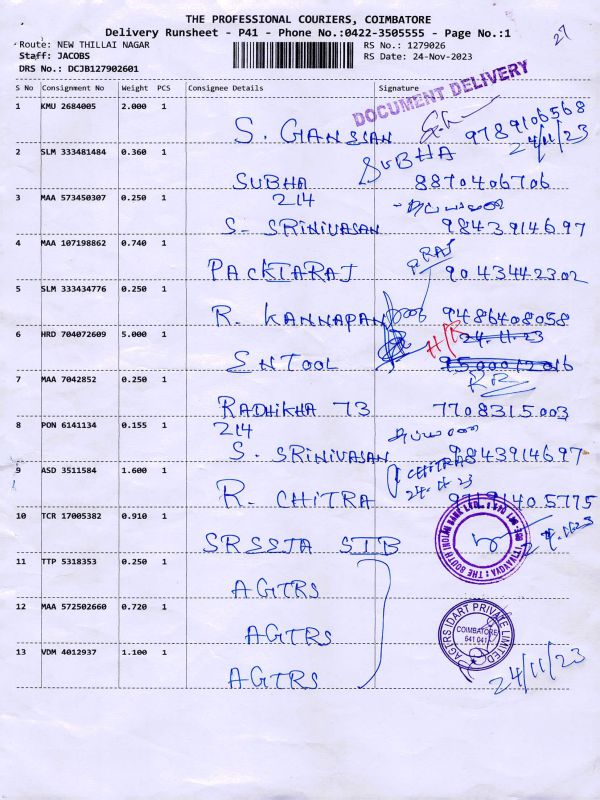 THE PROFESSIONAL COURIERS, COIMBATORE
Delivery Runsheet - P41 - Phone No.:0422-3505555 - Page No.:1
27
Route: NEW THILLAI NAGAR RS No.: 1279026
Staff: JACOBS RS Date: 24-Nov-2023
DRS No.: DCJB127902601
DOCUMENT DELIVERY
S No Consignment No Weight PCS Consignee Details Signature
1 KMU 2684005 2.000 1
S. GANESAN 9789106568
24/11/23
2 SLM 333481484 0.360 1
SUBHA SUBHA 8870406706
3 MAA 573450307 0.250 1
214
S. SRINIVASAN 9843914697
4 MAA 107198862 0.740 1
PACKIARAJ P. RAJ 9043442302
5 SLM 333434776 0.250 1
R. KANNAPAN 9486408058
6 HRD 704072609 5.000 1
H/R 24.11.23
ENTOOL
7 MAA 7042852 0.250 1
RADHIKHA 73 7708315003
8 PON 6141134 0.155 1
214
S. SRINIVASAN 9843914697
9 ASD 3511584 1.600 1
R. CHITRA CHITRA
24.11.23
10 TCR 17005382 0.910 1
SREEJA SIB
THE SOUTH INDIAN BANK LTD.
11 TTP 5318353 0.250 1
AGTRS
12 MAA 572502660 0.720 1
AGTRS
AGTRS IDART PRIVATE LIMITED
COIMBATORE
641 041
13 VDM 4012937 1.100 1
AGTRS
24/11/23